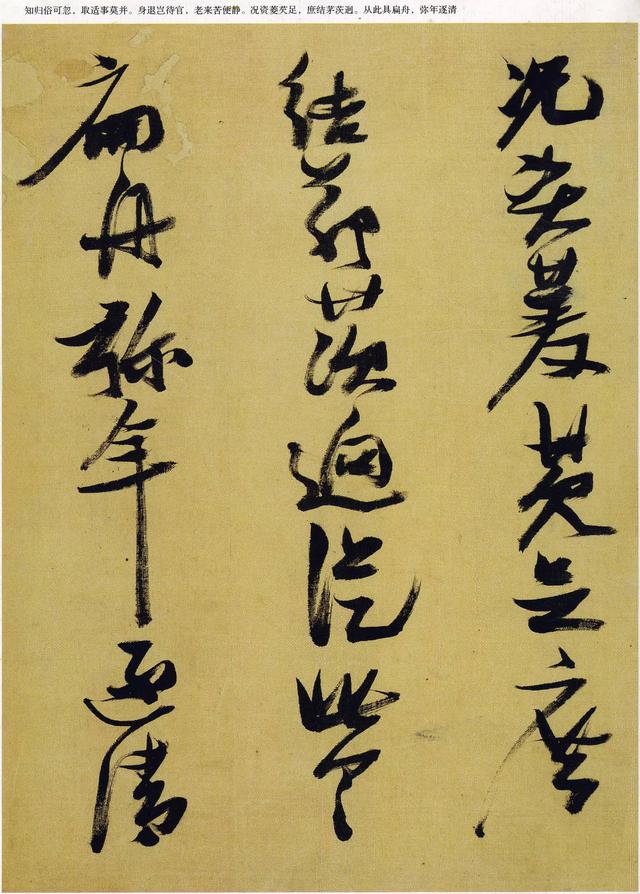 知归俗可忽，取适事莫并。身退岂待官，老来苦便静。况资菱芡足，庶结茅茨迥。从此具扁舟，弥年逐清
況資菱芡足庶
結茅茨迥從此具
扁舟弥年逐清